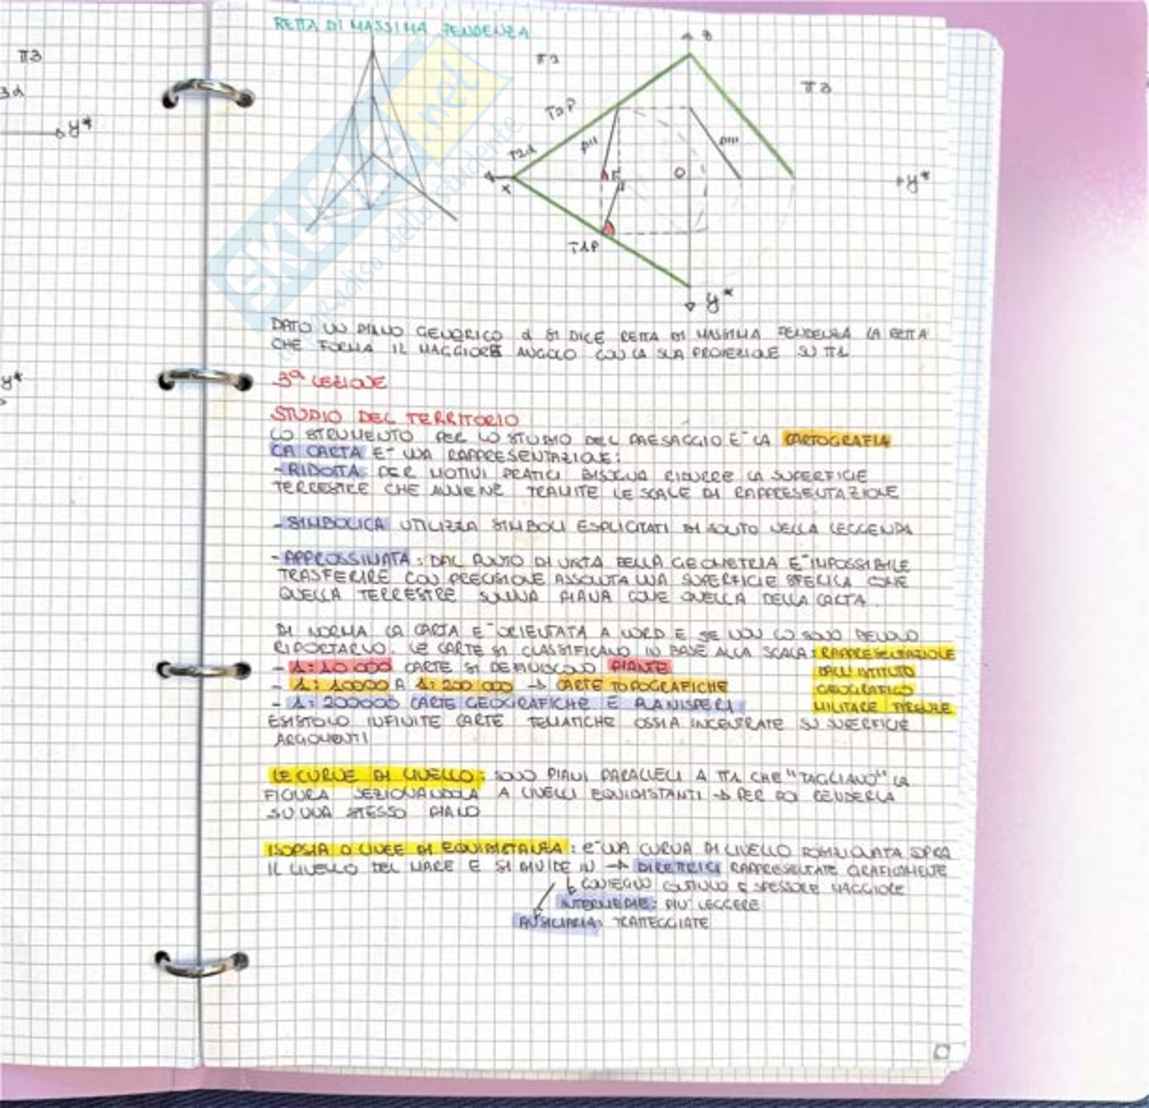 RETTA DI MASSIMA PENDENZA
π3
y*
y*
π2
z
π3
T2P
T2d
P''
P'''
x
O
y*
T1P
y*
DATO UN PIANO GENERICO α SI DICE RETTA DI MASSIMA PENDENZA LA RETTA
CHE FORMA IL MAGGIORE ANGOLO CON LA SUA PROIEZIONE SU π1
3ª LEZIONE
STUDIO DEL TERRITORIO
LO STRUMENTO PER LO STUDIO DEL PAESAGGIO E' LA CARTOGRAFIA
LA CARTA E' UNA RAPPRESENTAZIONE:
- RIDOTTA: PER MOTIVI PRATICI BISOGNA RIDURRE LA SUPERFICIE
TERRESTRE CHE AVVIENE TRAMITE LE SCALE DI RAPPRESENTAZIONE
- SIMBOLICA UTILIZZA SIMBOLI ESPLICITATI DI SOLITO NELLA LEGGENDA
- APPROSSIMATA: DAL PUNTO DI VISTA DELLA GEOMETRIA E' IMPOSSIBILE
TRASFERIRE CON PRECISIONE ASSOLUTA UNA SUPERFICIE SFERICA COME
QUELLA TERRESTRE SU UNA PIANA COME QUELLA DELLA CARTA.
DI NORMA LA CARTA E' ORIENTATA A NORD E SE NON LO SONO DEVONO
RIPORTARLO. LE CARTE SI CLASSIFICANO IN BASE ALLA SCALA: RAPPRESENTAZIONE
- 1:10 000 CARTE SI DEFINISCONO PIANTE DALL'ISTITUTO
- 1:10000 A 1:200 000 → CARTE TOPOGRAFICHE GEOGRAFICO
- 1:200000 CARTE GEOGRAFICHE E PLANISFERI MILITARE FIRENZE
ESISTONO INFINITE CARTE TEMATICHE OSSIA INCENTRATE SU
ARGOMENTI
LE CURVE DI LIVELLO: SONO PIANI PARALLELI A π1 CHE "TAGLIANO" LA
FIGURA SEZIONANDOLA A LIVELLI EQUIDISTANTI → PER POI RENDERLA
SU UNO STESSO PIANO
ISOPSIA O LINEE DI EQUIDISTANZA: E' UNA CURVA DI LIVELLO POSIZIONATA SOPRA
IL LIVELLO DEL MARE E SI DIVIDE IN → DIRETTRICI RAPPRESENTATE GRAFICAMENTE
CONTINUO E SPESSORE MAGGIORE
INTERMEDIE: PIU' LEGGERE
AUSILIARIA: TRATTEGGIATE
SKUOLA.net